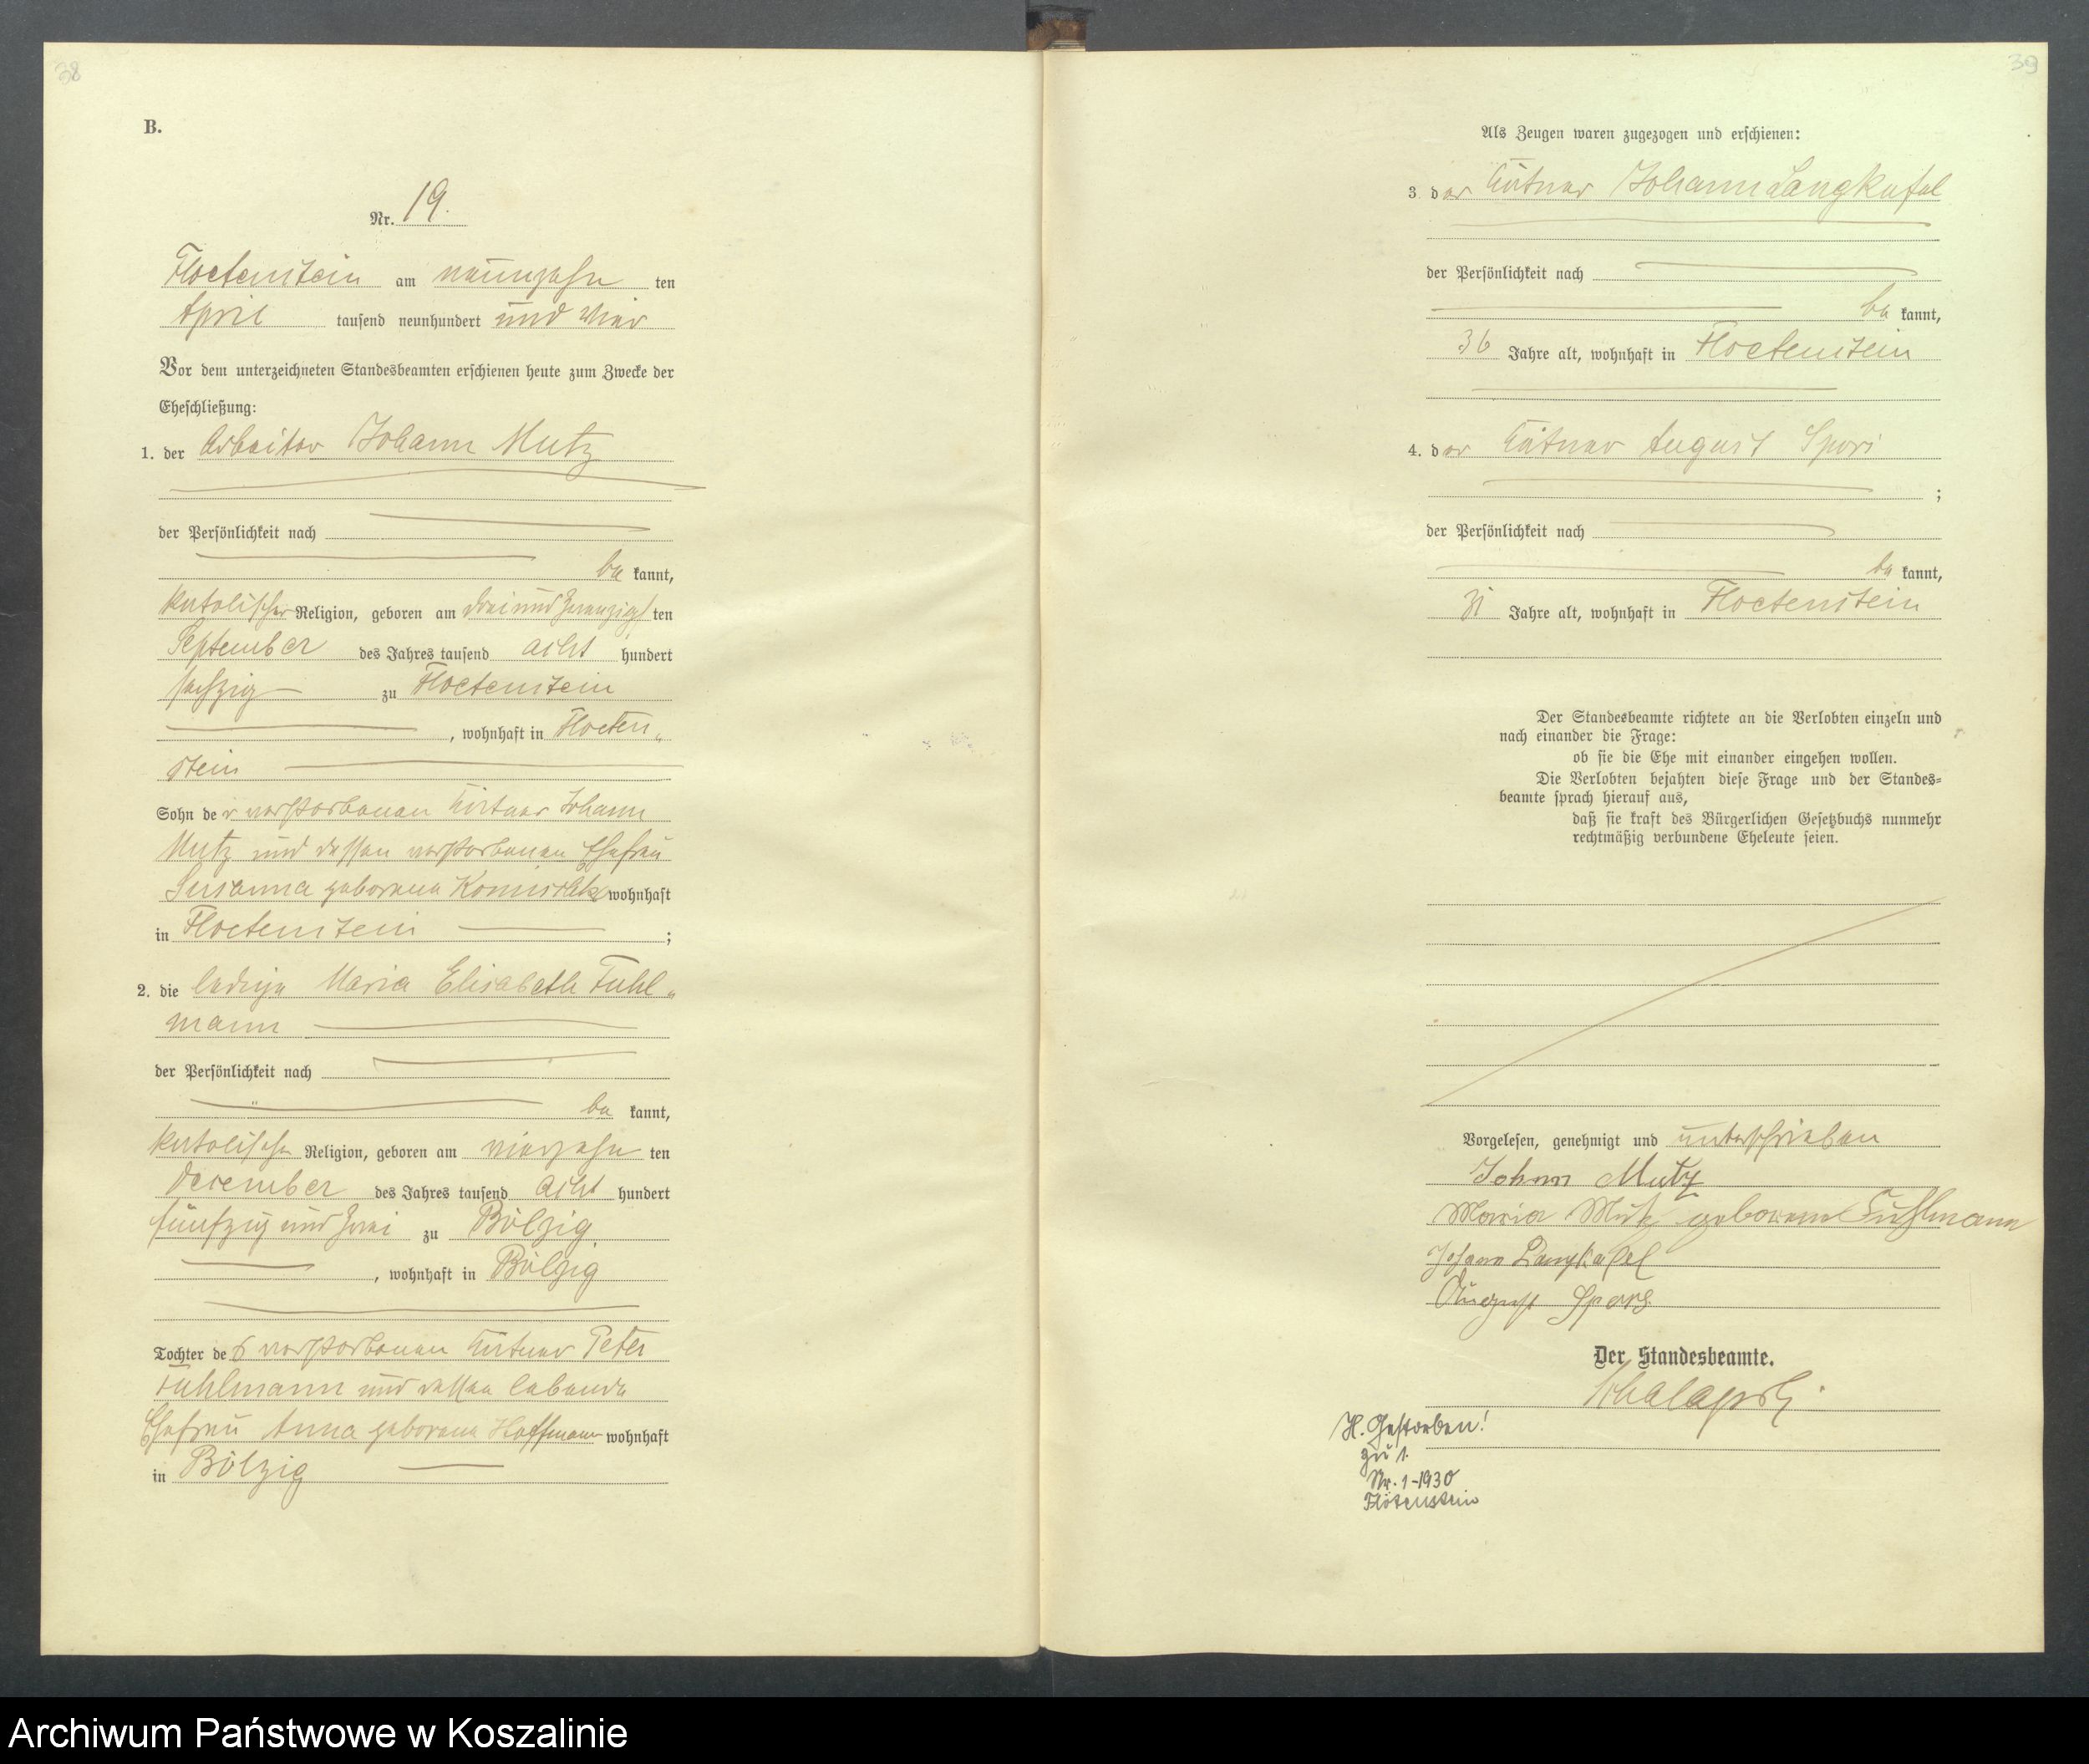 38
B.
Nr. 19.
Floetenstein am neunzehn ten
April tausend neunhundert und vier
Vor dem unterzeichneten Standesbeamten erschienen heute zum Zwecke der
Eheschließung:
1. der Arbeiter Johann Mutz
der Persönlichkeit nach
be kannt,
katolischer Religion, geboren am drei und zwanzigs ten
September des Jahres tausend acht hundert
sechzig zu Floetenstein
, wohnhaft in Floeten„
stein
Sohn der verstorbenen Kätner Johann
Mutz und dessen verstorbenen Ehefrau
Susanna geborene wohnhaft
in Floetenstein ;
2. die ledige Maria Elisabeth Fuhl„
mann
der Persönlichkeit nach
be kannt,
katolische Religion, geboren am vierzehn ten
December des Jahres tausend acht hundert
fünfzig und zwei zu Bölzig
, wohnhaft in Bölzig
Tochter des verstorbenen Kätner Peter
Fuhlmann und dessen lebende
Ehefrau Anna geborene Hoffmann wohnhaft
in Bölzig
39
Als Zeugen waren zugezogen und erschienen:
3. der Kätner Johann Langkafel
der Persönlichkeit nach
be kannt,
36 Jahre alt, wohnhaft in Floetenstein
4. der Kätner August Spors
;
der Persönlichkeit nach
be kannt,
31 Jahre alt, wohnhaft in Floetenstein
Der Standesbeamte richtete an die Verlobten einzeln und
nach einander die Frage:
ob sie die Ehe mit einander eingehen wollen.
Die Verlobten bejahten diese Frage und der Standes=
beamte sprach hierauf aus,
daß sie kraft des Bürgerlichen Gesetzbuchs nunmehr
rechtmäßig verbundene Eheleute seien.
Vorgelesen, genehmigt und unterschrieben
Johann Mutz
Maria Mutz geborene Fuhlmann
Johann Langkafel
August Spors
Der Standesbeamte.
H. Gestorben!
zu 1.
Nr. 1-1930
Flötenstein
Archiwum Państwowe w Koszalinie